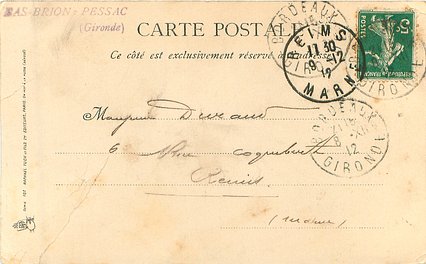 BAS-BRION-PESSAC
(Gironde)
CARTE POSTALE
Ce côté est exclusivement réservé à l'adresse
BORDEAUX
GIRONDE
REIMS
11 30
9-12
12
MARNE
5c
BORDEAUX
8
12
GIRONDE
Monsieur Durand
6 Rue Coquebert
Reims
(Marne)